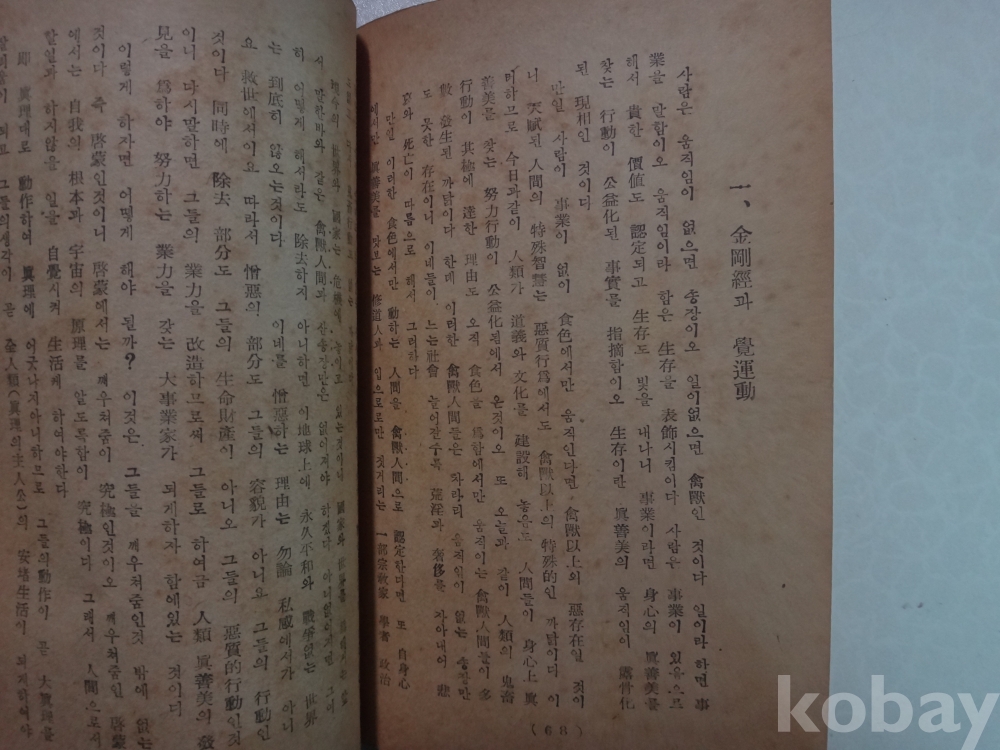 一、金剛經과 覺運動
사람은 움직임이 없으면 송장이오 일이없으면 禽獸인 것이다 일이라 하면 事
業을 말함이오 움직임이라 함은 生存을 表飾시킴이다 사람은 事業이 있음으로
해서 貴한 價値도 認定되고 生存도 빛을 내나니 事業이라면 身心의 眞善美를
찾는 行動이 公益化된 事實을 指摘함이오 生存이란 眞善美의 움직임이 露骨化
된 現相인 것이다
만일 사람이 事業이 없이 食色에서만 움직인다면 禽獸以上의 惡存在일 것이
니 天賦된 人間의 特殊智慧는 惡質行爲에서도 禽獸以上의 特殊的인 까닭이다 이
러하므로 今日과같이 人類가 道義와 文化를 建設해 놓음도 人間들이 身心上 眞
善美를 찾는 努力行動이 公益化됨에서 온것이오 또 오늘과 같이 人類의 鬼畜
行動이 其極에 達한 理由도 오직 食色을 爲함에서만 움직이는 禽獸人間들이 多
數 發生된 까닭이다 한데 이러한 禽獸人間들은 차라리 움직임이 없는 송장만
도 못한 存在이니 이네들이 느는社會 늘어갈수록 荒淫과 奢侈를 자아내어 悲
哀와 死亡이 따름으로 해서 그러하다
만일 이러한 食色에서만 動하는 人間을 禽獸人間으로 認定한다면 또 自身心
에서만 眞善美를 맛보는 修道人과 입으로만 짓거리는 一部宗敎家 學者 政治
(68)
서 말한바와 같은 禽獸人間과 산송장만은 없이저야 하겠다 아니없으지면 그이
히 어떻게 해서라도 除去하지 아니하면 이地球上에 永久平和와 戰爭없는 世界
는 到底히 잃오는것이다 이네를 憎惡하는 理由는 勿論 私感에서가 아니
요 救世에서이요 따라서 憎惡의 部分도 그들의 容貌가 아니요 그들의 行動인
것이다 同時에 除去 部分도 그들의 生命財產이 아니오 그들의 惡質的行動인것
이니 다시말하면 그들의 業力을 改造하므로써 그들로 하여금 人類 眞善美의 發
見을 爲하야 努力하는 業力을 갖는 大事業家가 되게하자 함에있는 것이다
이렇게 하자면 어떻게 해야 될까? 이것은 그들을 깨우쳐줌인것 밖에 없는
것이다 즉 啓蒙인것이니 啓蒙에서는 깨우쳐줌이 究極인것이오 깨우쳐줌인 啓蒙
에서는 自我의 根本과 宇宙의 原理를 알도록함이 究極이다 그래서 人間으로서
할일과 하지않을 일을 自覺시켜 生活케 하여야한다
即 眞理대로 動作하여 眞理에 어긋나지아니하므로 그들의動作이 곧 大眞理를
그들의생각이 곧 全人類(眞理의主人公)의 安堵生活이 되게하여야
kobay